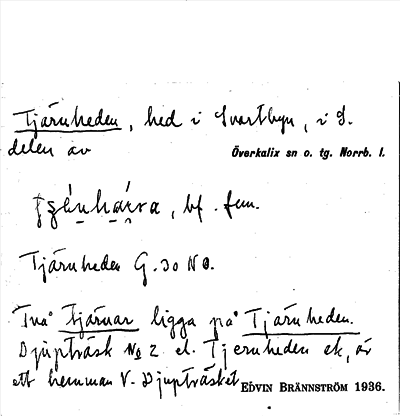 Tjärnheden, hed i Svartbyn, i S.
delen av Överkalix sn o. tg. Norrb. l.
bf. fem.
Tjärnheden G. 30 NO.
Två tjärnar ligga på Tjärnheden.
Djupträsk No 2 el. Tjernheden ek, är
ett hemman V. Djupträsket
EDVIN BRÄNNSTRÖM 1936.